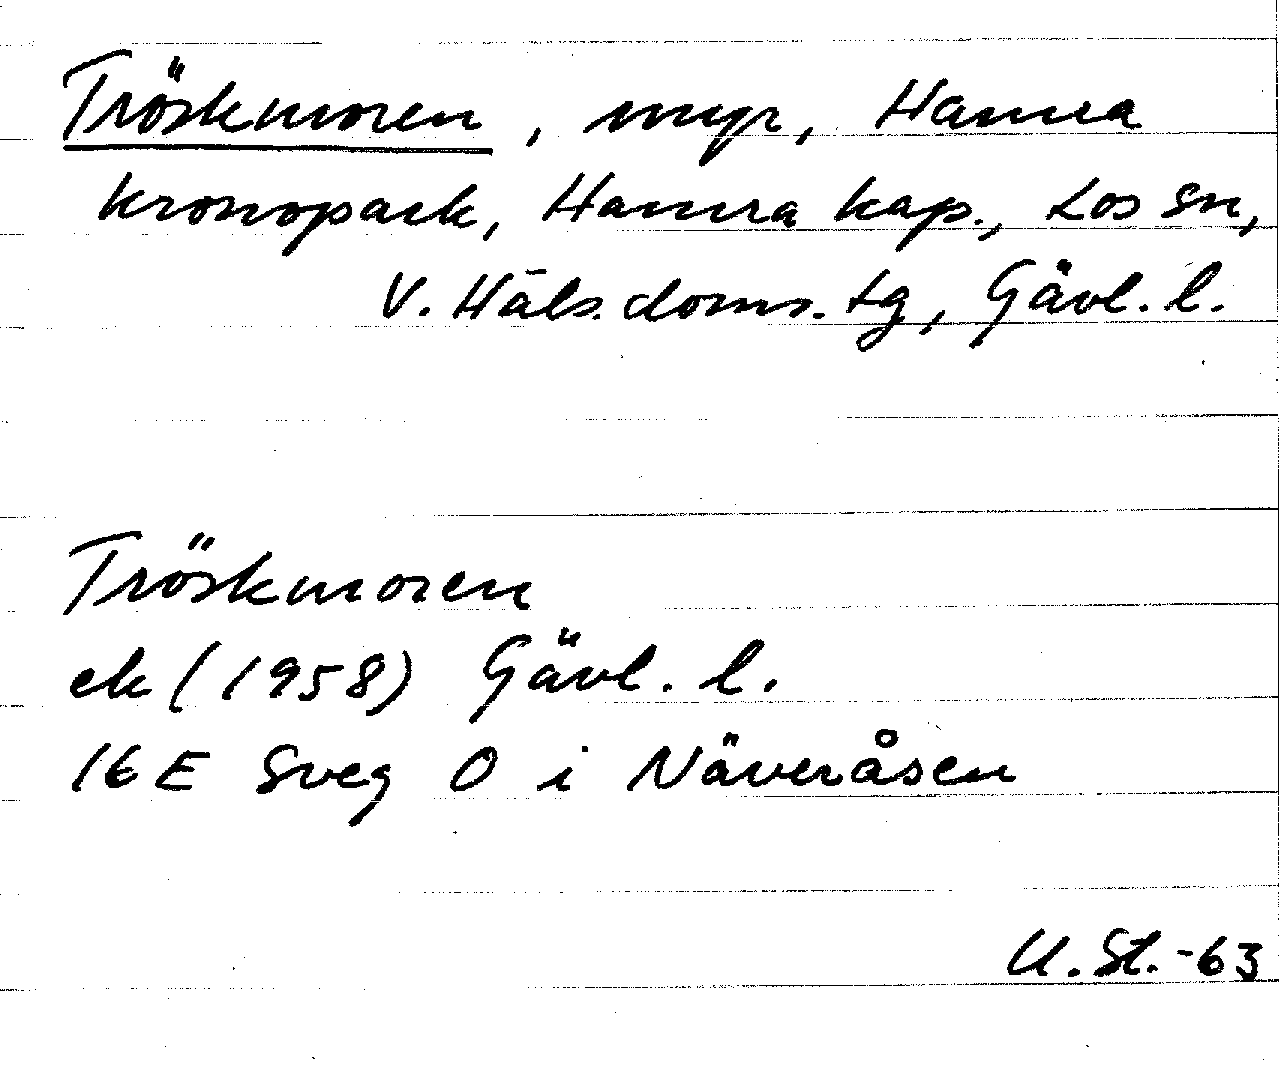 Tröskmoren, myr, Hamra
kronopark, Hamra kap., Los sn,
V. Häls. doms. tg, Gävl. l.
Tröskmoren
ek (1958) Gävl. l.
16 E Sveg O i Näveråsen
U. St. -63